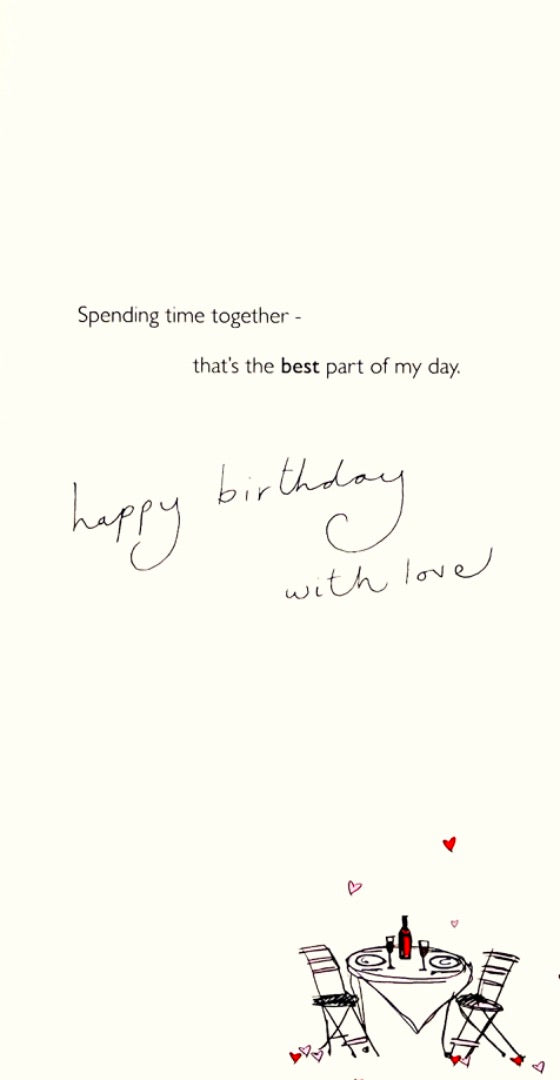 Spending time together -
that's the best part of my day.
happy birthday
with love